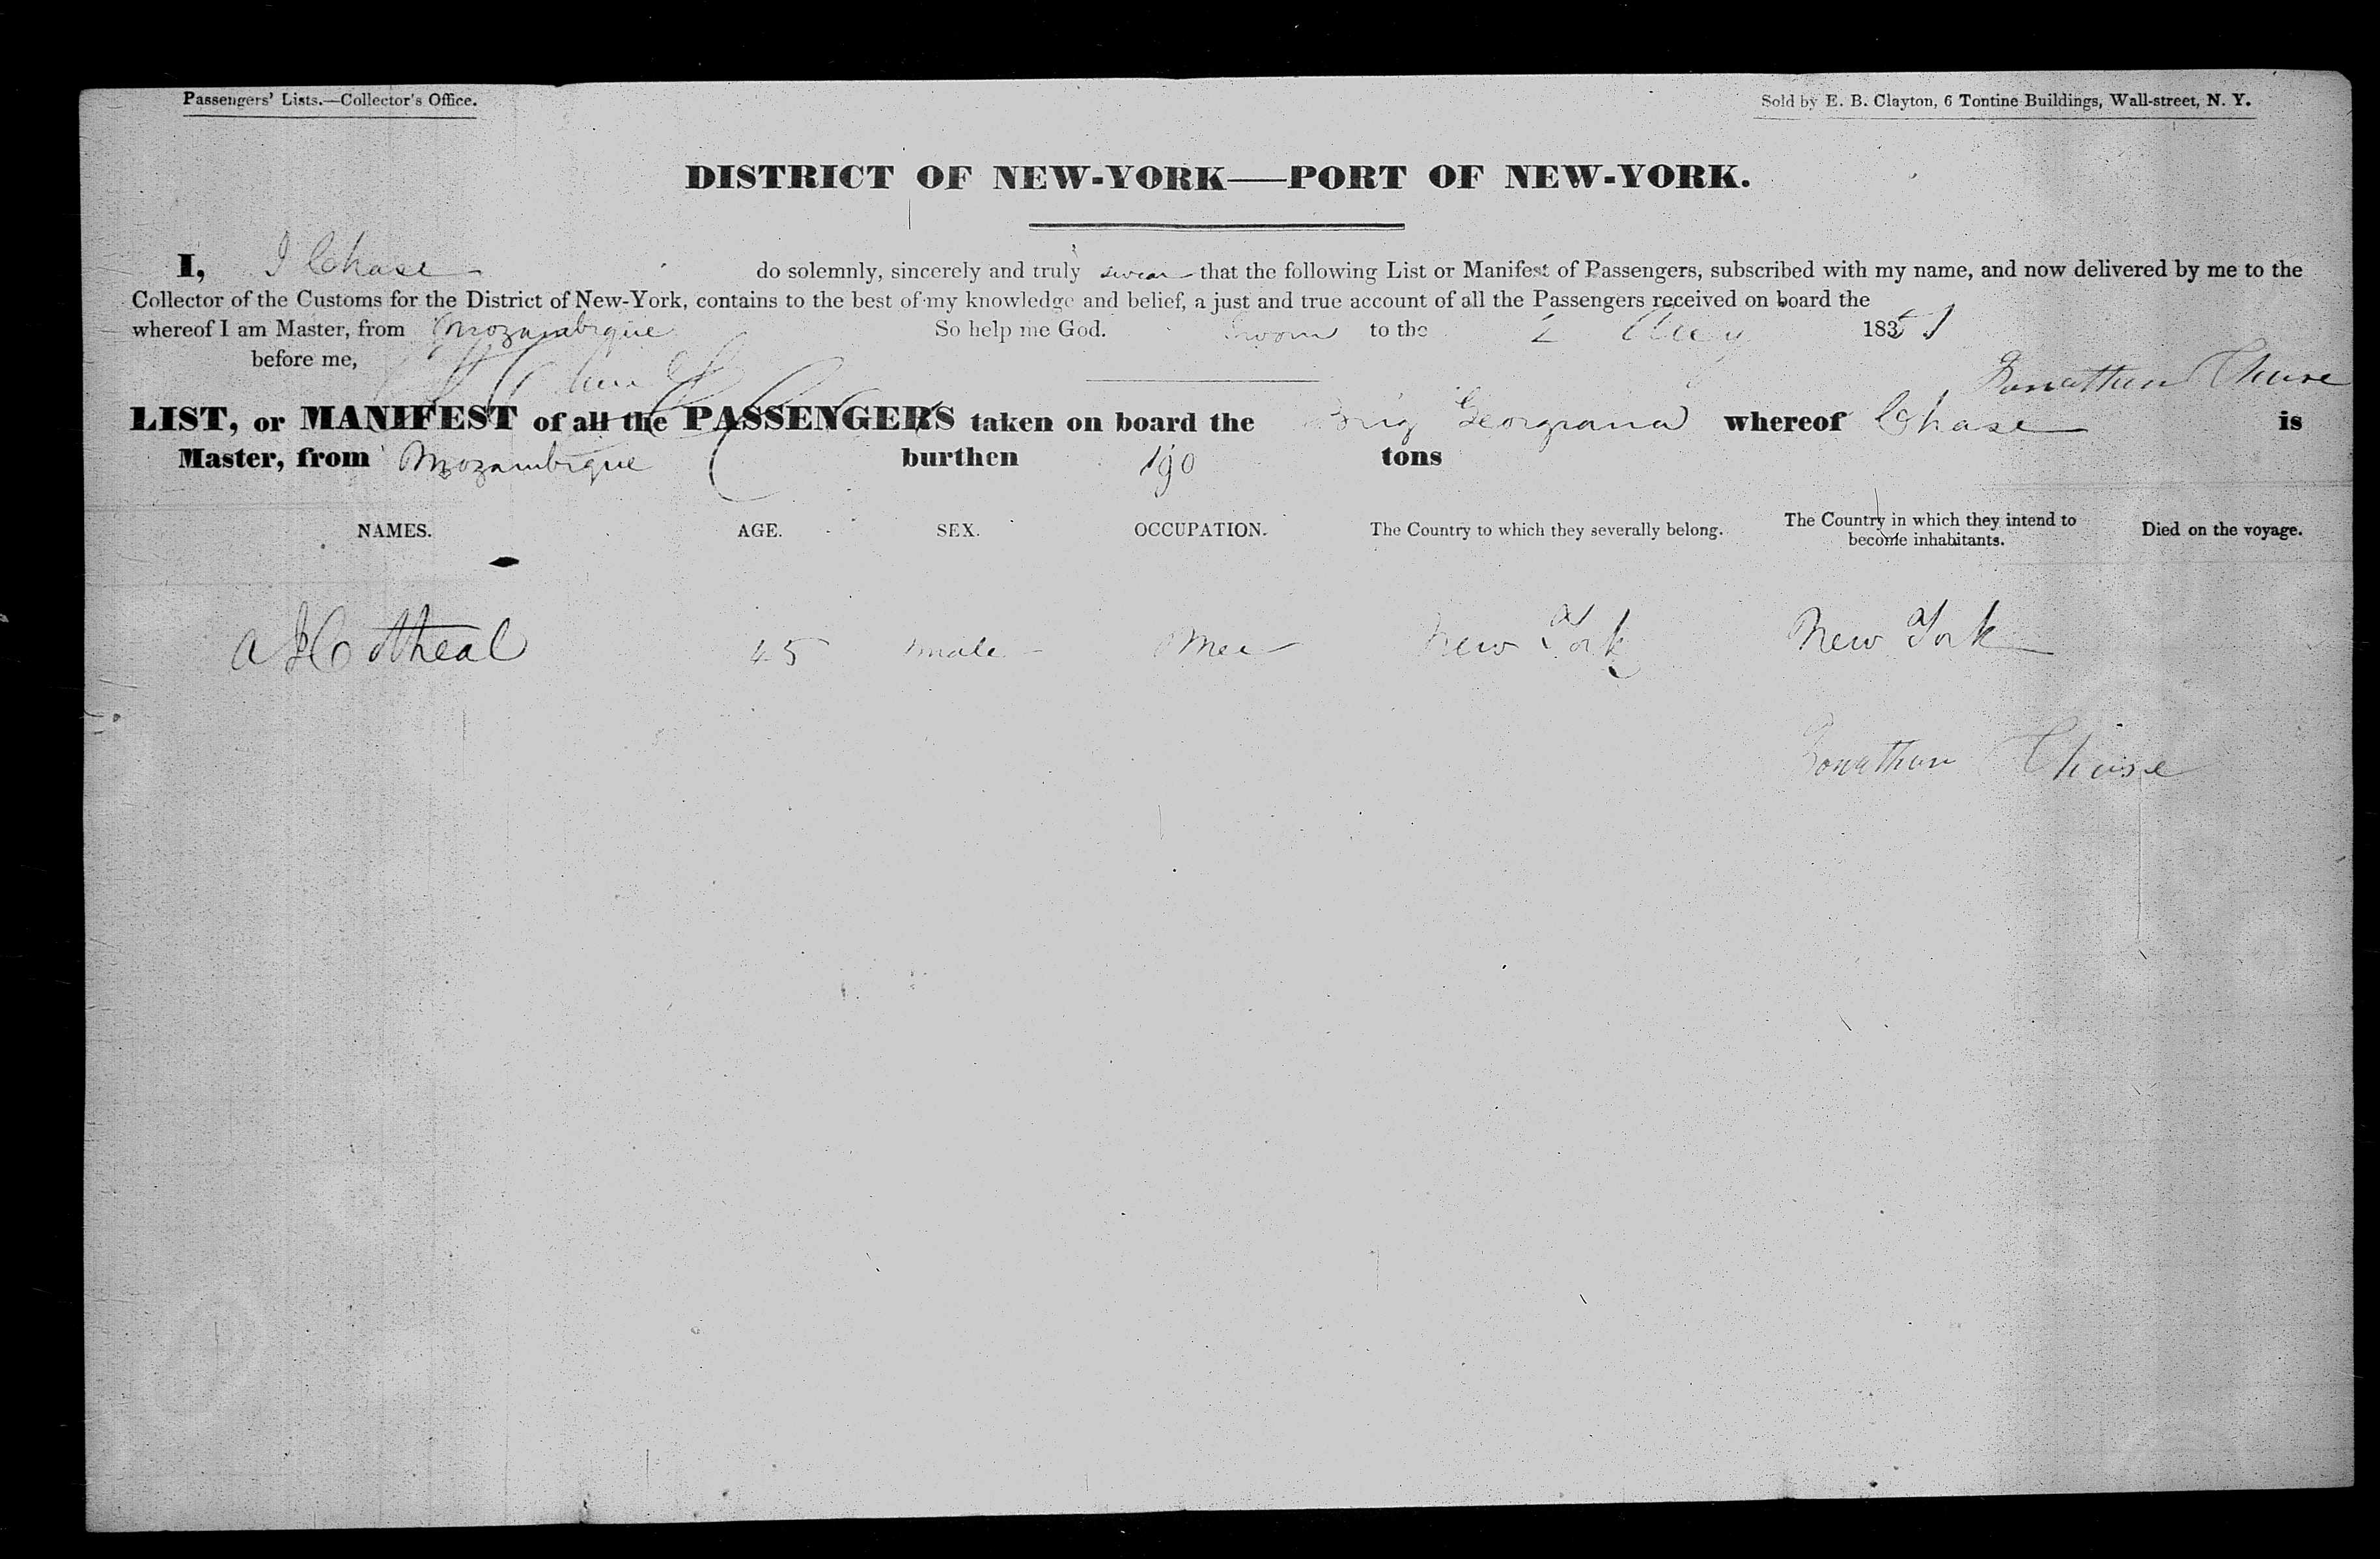 Passengers' Lists.—Collector's Office.
Sold by E. B. Clayton, 6 Tontine Buildings, Wall-street, N. Y.
DISTRICT OF NEW-YORK——PORT OF NEW-YORK.
I, J Chase do solemnly, sincerely and truly swear that the following List or Manifest of Passengers, subscribed with my name, and now delivered by me to the
Collector of the Customs for the District of New-York, contains to the best of my knowledge and belief, a just and true account of all the Passengers received on board the
whereof I am Master, from Mozambique So help me God. Sworn to the 2 183
before me,
Jonathan Chase
LIST, or MANIFEST of all the PASSENGERS taken on board the Brig Georgiana whereof Chase is
Master, from Mozambique burthen 190 tons
NAMES. AGE. SEX. OCCUPATION. The Country to which they severally belong. The Country in which they intend to become inhabitants. Died on the voyage.
A J Cotheal 45 male Mer New York New York
Jonathan Chase